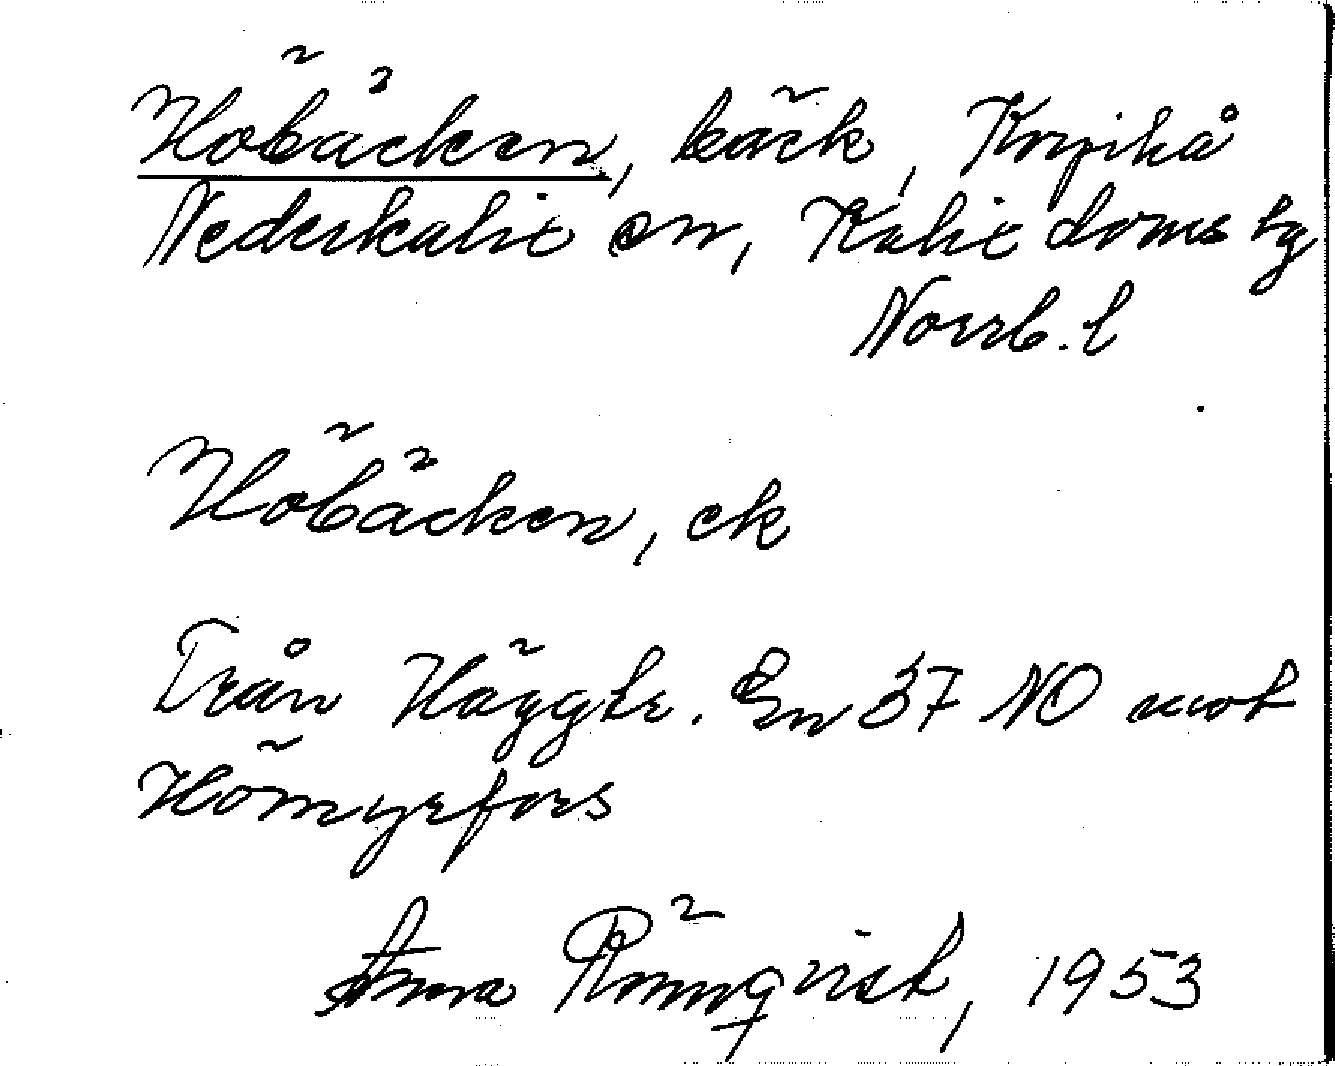 Höbäcken, bäck, Korpikå
Nederkalix sn, Kalix doms tg
Norrb. l
Höbäcken, ek
Från Häggtr. En 37 NO mot
Hömyrefors
Anna Rönnqvist, 1953